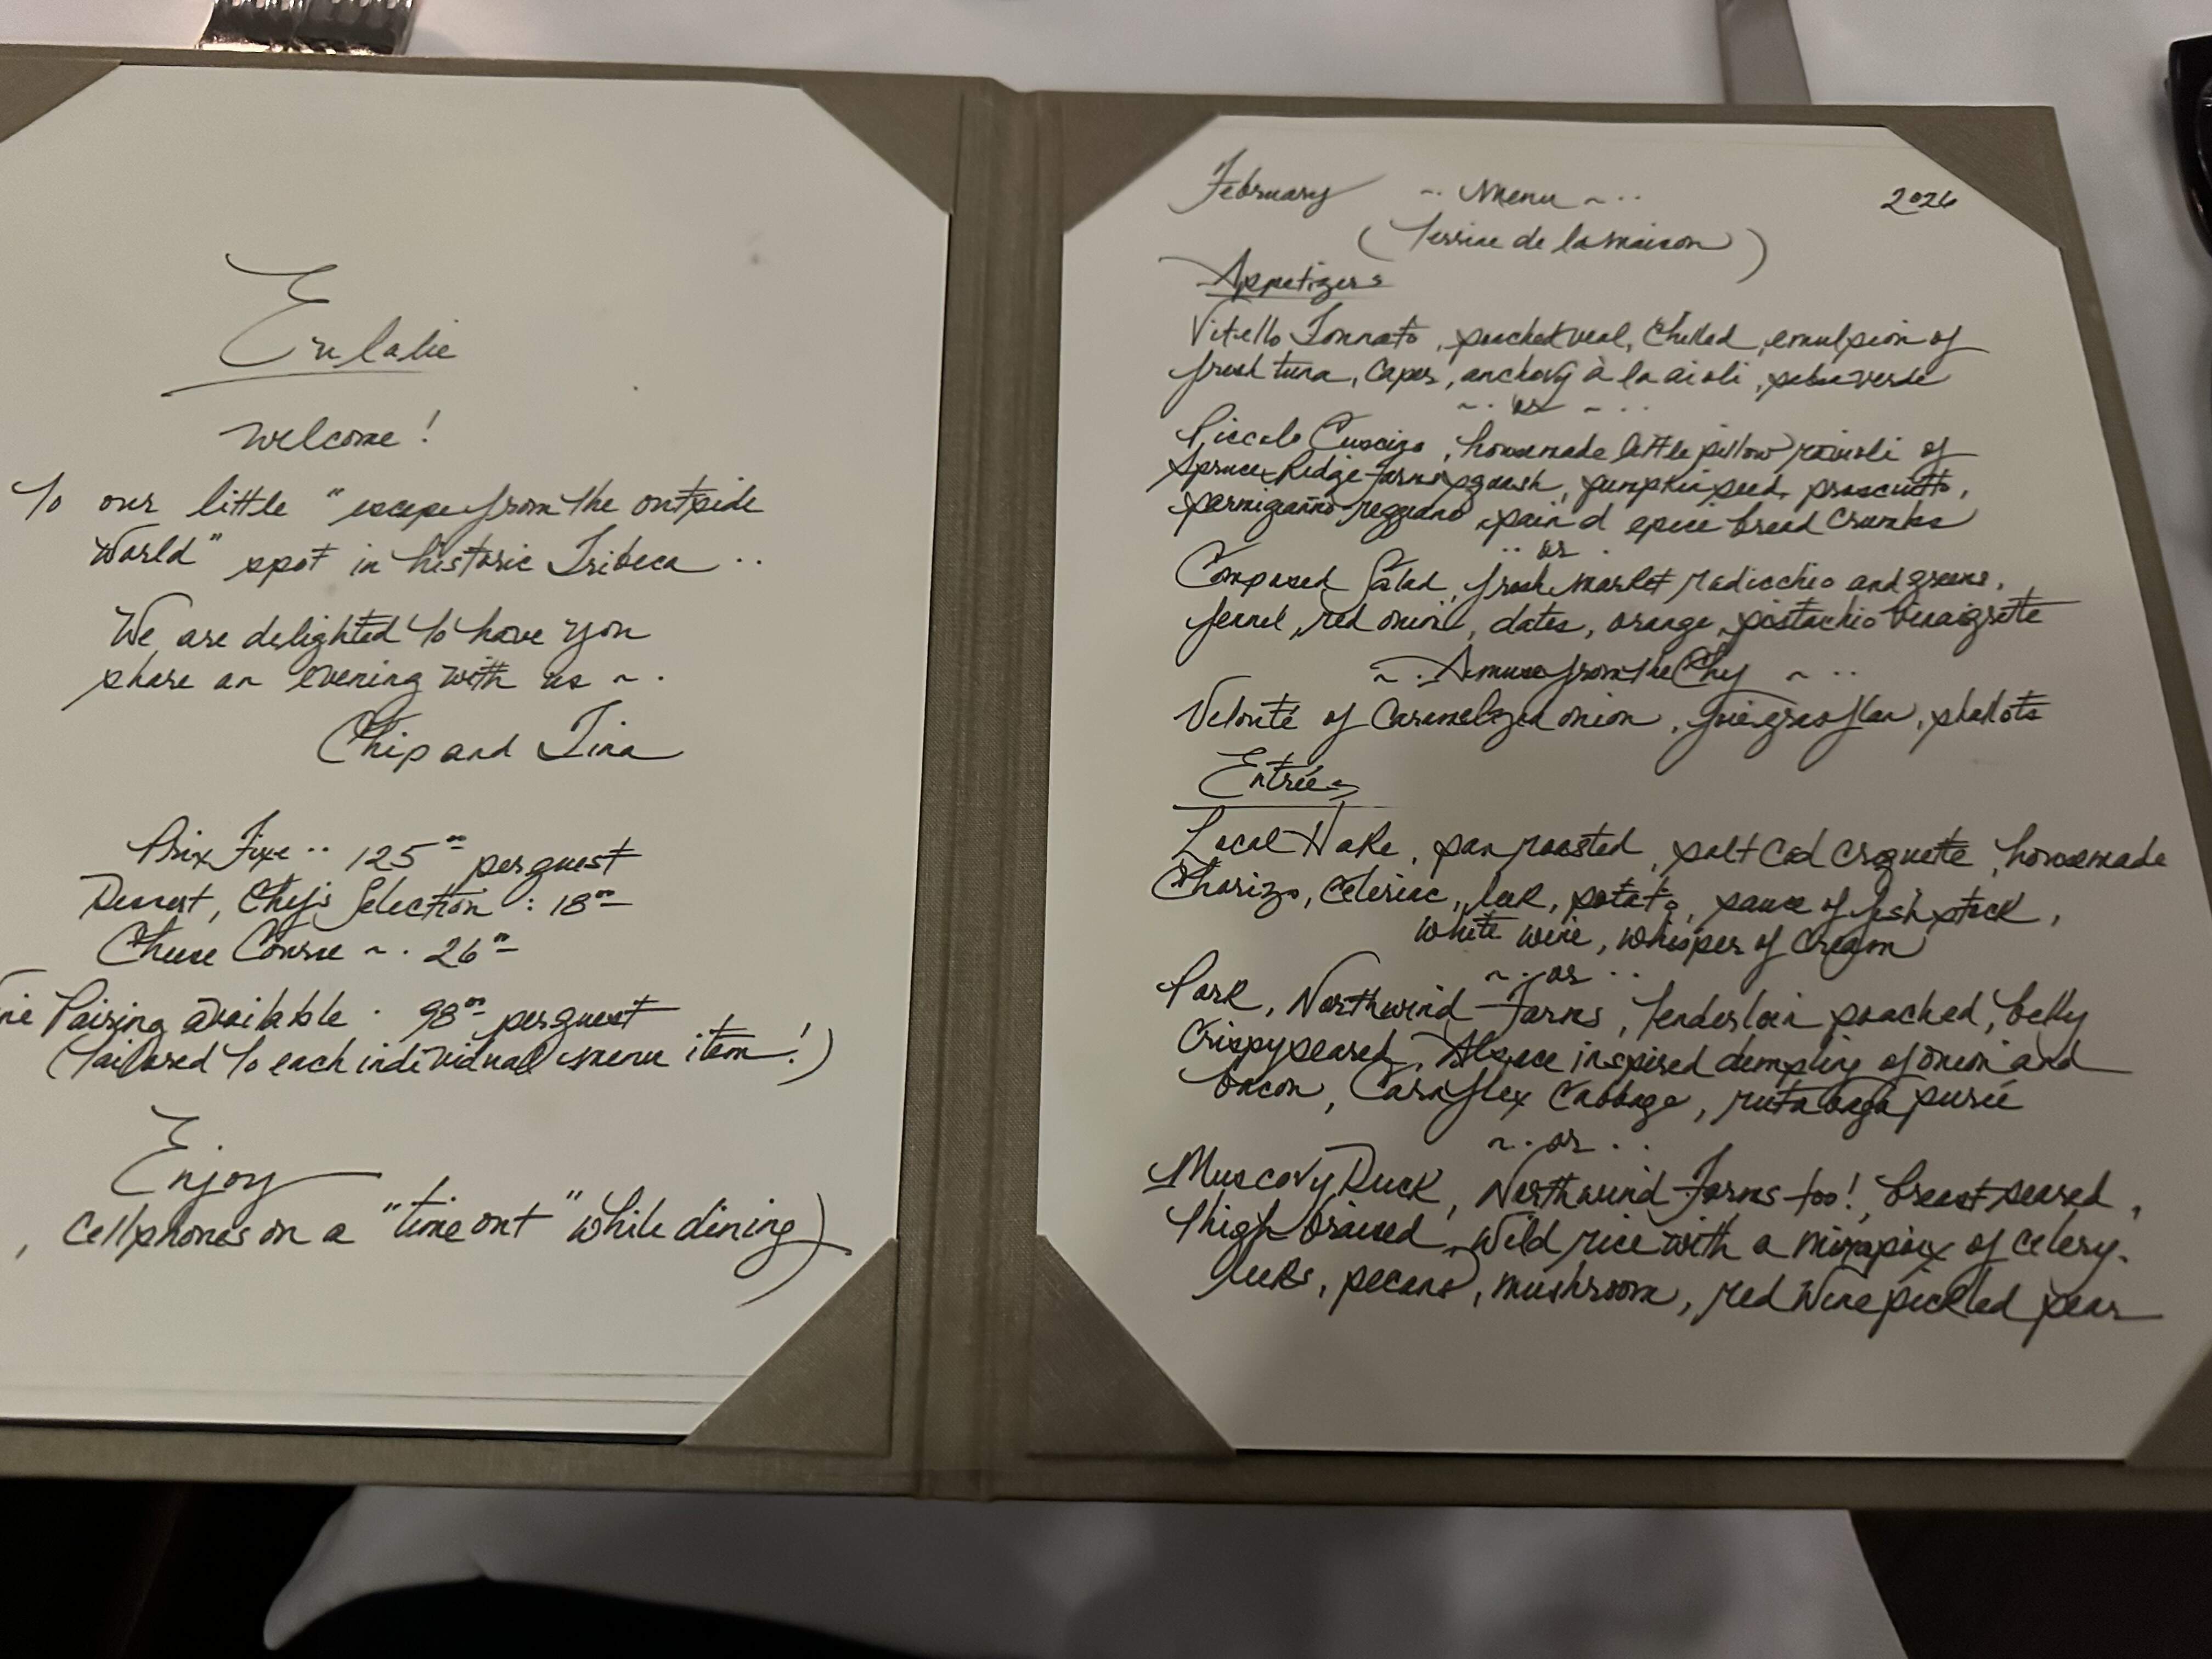 Eulalie
Welcome!
To our little "escape from the outside
World" spot in historic Tribeca ..
We are delighted to have you
share an evening with us ~ .
Chip and Tina
Prix Fixe .. 125.00 per guest
Dessert, Chef's Selection : 18.00
Cheese Course ~ . 26.00
Pairing available . 98.00 per guest
(tailored to each individual menu item!)
Enjoy
, cellphones on a "time out" while dining)
February ~ Menu ~ .. 2026
(Terrine de la maison)
Appetizers
Vitello Tonnato, poached veal, chilled, emulsion of
fresh tuna, capers, anchovy à la aioli, salsa verde
~ . or ~ . .
Piccolo Cuscino, homemade little pillow ravioli of
Spruce Ridge Farms squash, pumpkin seed, proscuitto,
parmigianno reggiano, pain d epice bread crumbs
.. or .
Composed Salad, fresh market radicchio and greens,
fennel, red onion, dates, orange, pistachio vinaigrette
~ . Amuse from the Chef ~ ..
Velouté of Caramelized onion, foie gras flan, shallots
Entrées
Local Hake, pan roasted, salt Cod croquette, homemade
Chorizo, Celeriac, leek, potato, sauce of fish stock,
white wine, whisper of cream
~ . or . .
Pork, Northwind Farms, Tenderloin poached, belly
Crispy seared, Alsace inspired dumpling of onion and
bacon, Caraflex Cabbage, rutabaga purée
~ . or . .
Muscovy Duck, Northwind Farms too!, breast seared,
Thigh braised, Wild rice with a mirapoix of celery.
leeks, pecans, mushroom, red Wine pickled pear